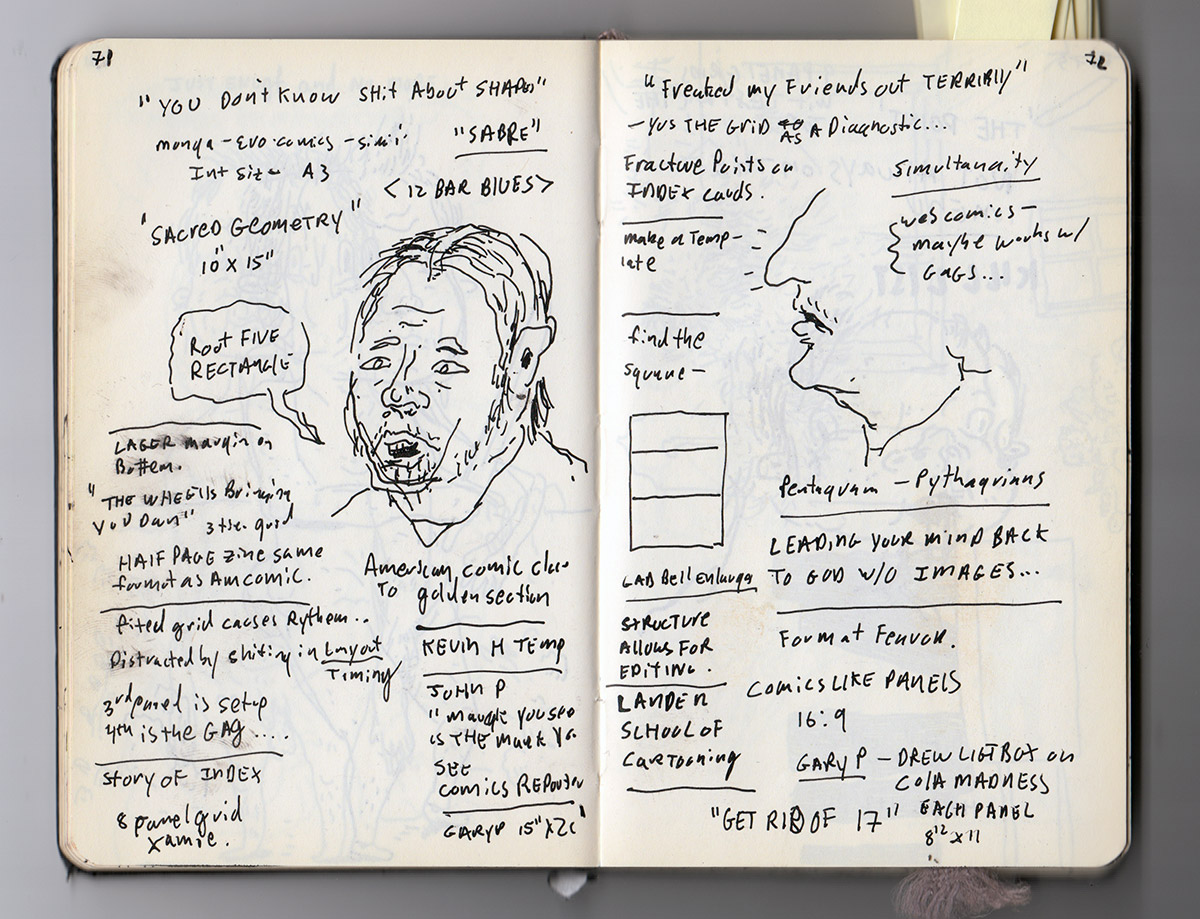 71
"YOU Don't Know SHit About SHAPES"
manga - Evo-comics - simi.
Int size A3
"SABRE"
< 12 BAR BLUES >
"SACRED GEOMETRY"
10" X 15"
Root FIVE
RECTANGLE
LAGER margin on
Bottem.
"THE WHEEL IS Bringing
YOU DOWN" 3 tier grid
HALF PAGE zine same
format as Am comic.
American comic close
To golden section
fixed grid causes Rythem..
Distracted by shifting in Layout
Timing
3rd panel is setup
4th is the GAG ....
story OF INDEX
8 panel grid
KEVIN H TEMP
JOHN P
"maugle you see
is THE mark
SEE
comics REPorter
GARY P 15" X
72
"Freaked my Friends out TERRIBLY"
- yus THE GRID AS A Diagnostic...
Fracture Points on
INDEX cards.
simultanaity
webcomics -
maybe works w/
GAGS...
make a Temp-
late
find the
square -
Pentagram - Pythagrians
LEADING YOUR MIND BACK
TO GOD W/O IMAGES...
LAD Bell Enlarge
STRUCTURE
ALLOWS FOR
EDITING.
Format Fervor.
COMICS LIKE PANELS
16:9
LANDEN
SCHOOL OF
CARTOONING
GARY P - DREW LIGTBOX on
COLA MADNESS
EACH PANEL
8 1/2 X 11
"GET RID OF 17"